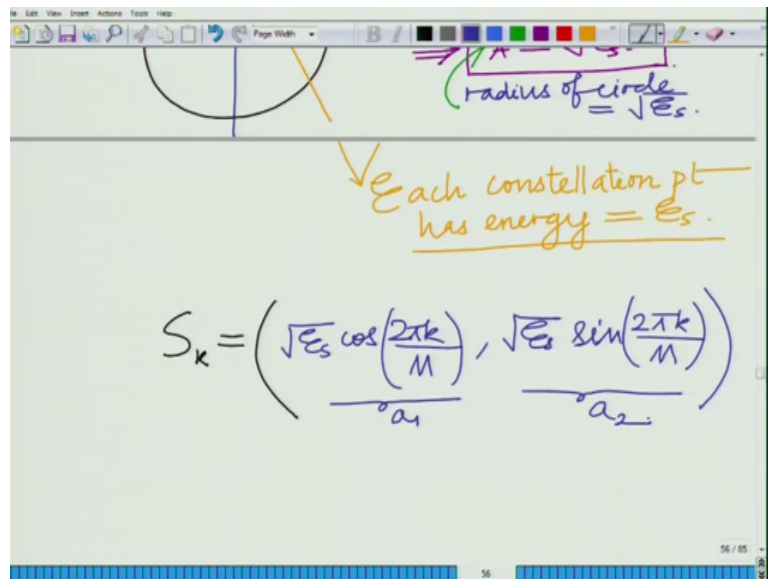 Edit View Insert Actions Tools Help
Page Width
B I
radius of circle
= √Es.
Each constellation pt
has energy = Es.
Sk = (√Es cos(2πk/M), √Es sin(2πk/M))
a1 a2
56 / 85
56